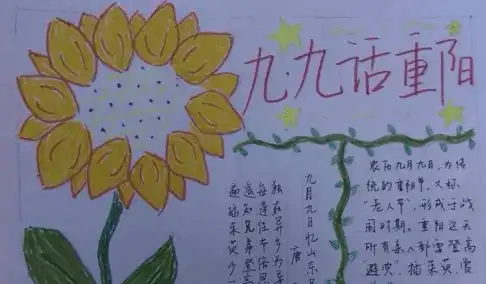 九·九话重阳
九月九日忆山东
唐
独在异乡为异
每逢佳节倍思
遥知兄弟登高
遍插茱萸少一
农历九月九日，为传
统的重阳节，又称
“老人节”，形成于战
国时期。重阳这天
所有亲人都要登高
“避灾”，插茱萸、赏